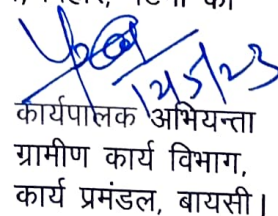 12/5/23
कार्यपालक अभियन्ता
ग्रामीण कार्य विभाग,
कार्य प्रमंडल, बायसी।